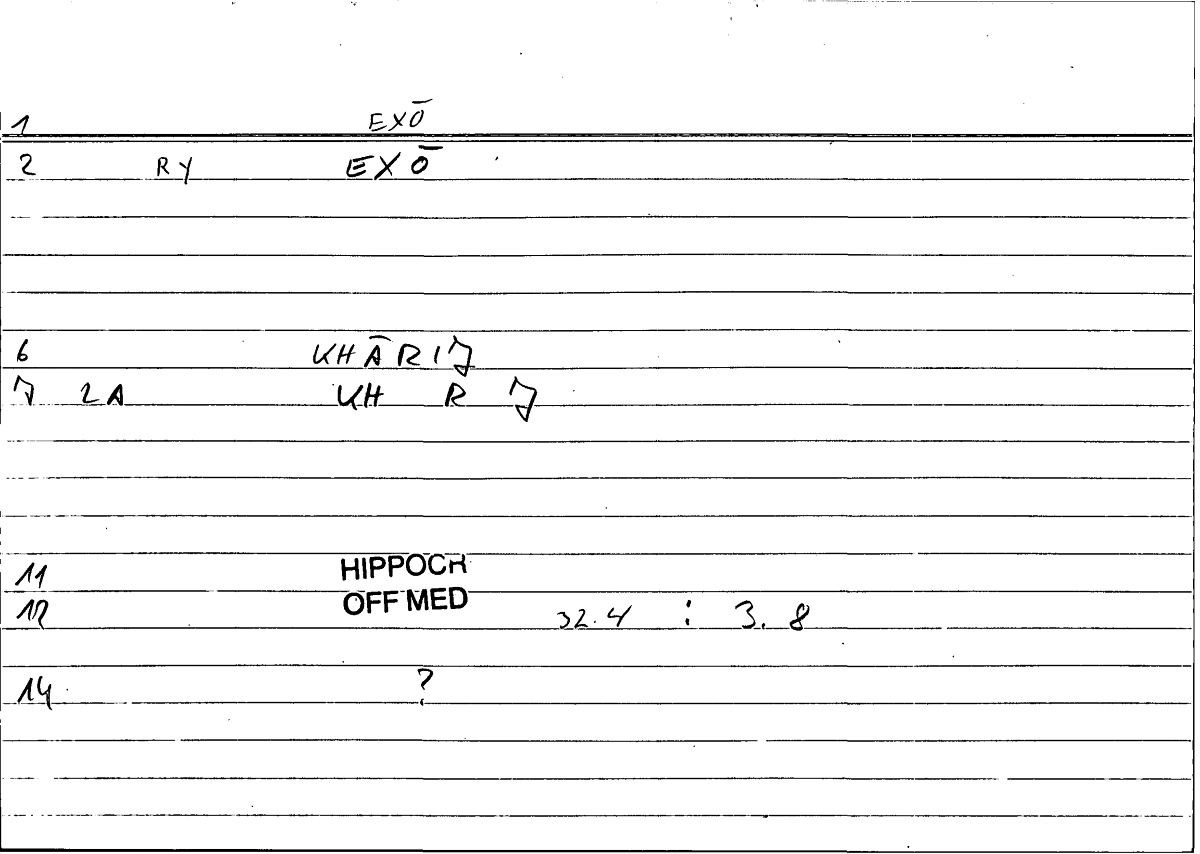 1 EXŌ
2 RY EXŌ
6 KHĀRIJ
7 2A KH R J
11 HIPPOCR
12 OFF MED 32.4 : 3.8
14 ?